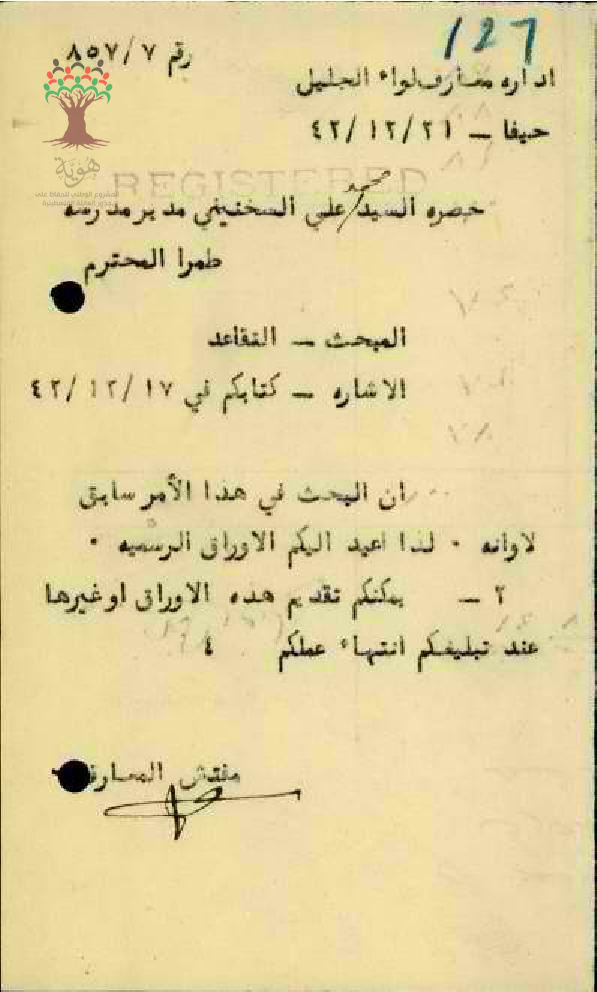 127
رقم ٨٥٧/٧
اداره معارف لواء الجليل
حيفا – ٤٢/١٢/٢١
هوية
المشروع الوطني للحفاظ على
جذور العائلة الفلسطينية
REGISTERED
حضره السيد/ محمد علي السخنيني مدير مدرسه
طمرا المحترم
المبحث – التقاعد
الاشاره – كتابكم في ٤٢/١٢/١٧
ان البحث في هذا الأمر سابق
لاوانه ٠ لذا اعيد اليكم الاوراق الرسميه ٠
٢ – يمكنكم تقديم هذه الاوراق او غيرها
عند تبليغكم انتهاء عملكم ٤
مفتش المعارف